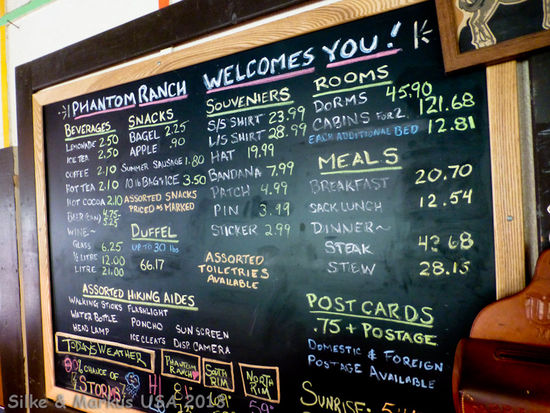 PHANTOM RANCH WELCOMES YOU!
BEVERAGES
LEMONADE 2.50
ICE TEA 2.50
COFFEE 2.10
HOT TEA 2.10
HOT COCOA 2.10
BEER (CAN) 4.75-
5.25
WINE~
GLASS 6.25
½ LITRE 12.00
LITRE 21.00
SNACKS
BAGEL 2.25
APPLE .90
SUMMER SAUSAGE 1.80
10 lb BAG ICE 3.50
ASSORTED SNACKS
PRICED AS MARKED
DUFFEL
UP TO 30 lbs
66.17
SOUVENIERS
S/S SHIRT 23.99
L/S SHIRT 28.99
HAT 19.99
BANDANA 7.99
PATCH 4.99
PIN 3.99
STICKER 2.99
ASSORTED
TOILETRIES
AVAILABLE
ROOMS
DORMS 45.90
CABINS FOR 2 121.68
EACH ADDITIONAL BED 12.81
MEALS
BREAKFAST 20.70
SACK LUNCH 12.54
DINNER~
STEAK
STEW 28.15
ASSORTED HIKING AIDES
WALKING STICKS FLASHLIGHT
WATER BOTTLE PONCHO SUN SCREEN
HEAD LAMP ICE CLEATS DISP. CAMERA
POST CARDS
.75 + POSTAGE
DOMESTIC & FOREIGN
POSTAGE AVAILABLE
TODAY'S WEATHER
PHANTOM RANCH
SOUTH RIM
NORTH RIM
% CHANCE OF
STORMS
H
SUNRISE:
Silke & Markus USA 2013